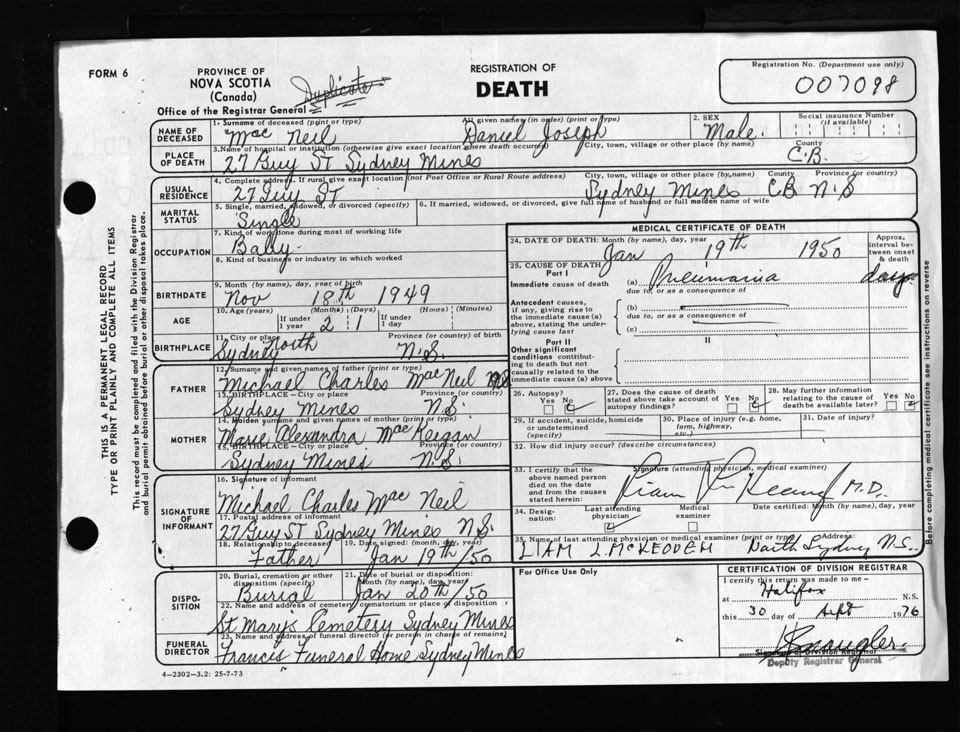 FORM 6
PROVINCE OF
NOVA SCOTIA
(Canada)
Office of the Registrar General
Duplicate
REGISTRATION OF
DEATH
Registration No. (Department use only)
007098
THIS IS A PERMANENT LEGAL RECORD
TYPE OR PRINT PLAINLY AND COMPLETE ALL ITEMS
This record must be completed and filed with the Division Registrar
and burial permit obtained before burial or other disposal takes place.
NAME OF DECEASED
1. Surname of deceased (print or type)
Mac Neil
All given names (in order) (print or type)
Daniel Joseph
2. SEX
Male.
Social insurance Number
(if available)
PLACE OF DEATH
3. Name of hospital or institution (otherwise give exact location where death occurred)
27 Guy ST Sydney Mines
City, town, village or other place (by name)
County
C.B.
USUAL RESIDENCE
4. Complete address. If rural give exact location (not Post Office or Rural Route address)
27 Guy ST
City, town, village or other place (by name)
Sydney Mines
County
CB
Province (or country)
N.S
MARITAL STATUS
5. Single, married, widowed, or divorced (specify)
Single
6. If married, widowed, or divorced, give full name of husband or full maiden name of wife
OCCUPATION
7. Kind of work done during most of working life
Baby
8. Kind of business or industry in which worked
BIRTHDATE
9. Month (by name), day, year of birth
Nov 18th 1949
AGE
10. Age (years)
If under 1 year
(Months)
2
(Days)
1
If under 1 day
(Hours)
(Minutes)
BIRTHPLACE
11. City or place
North
Sydney
Province (or country) of birth
N.S.
FATHER
12. Surname and given names of father (print or type)
Michael Charles Mac Neil
13. BIRTHPLACE—City or place
Sydney Mines
Province (or country)
N.S.
MOTHER
14. Maiden surname and given names of mother (print or type)
Marie Alexandra Mac
15. BIRTHPLACE—City or place
Sydney Mines
Province (or country)
N.S.
SIGNATURE OF INFORMANT
16. Signature of informant
Michael Charles Mac Neil
17. Postal address of informant
27 Guy ST Sydney Mines N.S.
18. Relationship to deceased
Father
19. Date signed: (month, day, year)
Jan 19th/50
DISPOSITION
20. Burial, cremation or other disposition (specify)
Burial
21. Date of burial or disposition
(Month (by name), day, year)
Jan 20th/50
22. Name and address of cemetery, crematorium or place of disposition
St Mary's Cemetery Sydney Mines
FUNERAL DIRECTOR
23. Name and address of funeral director (or person in charge of remains)
Francis Funeral Home Sydney Mines
4-2302-3.2: 25-7-73
MEDICAL CERTIFICATE OF DEATH
24. DATE OF DEATH: Month (by name), day, year
Jan 19th 1950
Approx. interval between onset & death
25. CAUSE OF DEATH
Part I
Immediate cause of death
(a) Pneumonia
days
due to, or as a consequence of
Antecedent causes, if any, giving rise to the immediate cause (a) above, stating the underlying cause last
(b)
due to, or as a consequence of
(c)
Part II
II
Other significant conditions contributing to death but not causally related to the immediate cause (a) above
26. Autopsy?
Yes No
27. Does the cause of death stated above take account of autopsy findings?
Yes No
28. May further information relating to the cause of death be available later?
Yes No
29. If accident, suicide, homicide or undetermined (specify)
30. Place of injury (e.g. home, farm, highway, etc.)
31. Date of injury?
32. How did injury occur? (describe circumstances)
33. I certify that the above named person died on the date and from the causes stated herein:
Signature (attending physician, medical examiner)
M.D.
34. Designation:
Last attending physician
Medical examiner
Date certified: (Month (by name), day, year
35. Name of last attending physician or medical examiner (print or type)
LIAM
Address:
Sydney N.S.
For Office Use Only
CERTIFICATION OF DIVISION REGISTRAR
I certify this return was made to me—
at Halifax N.S.
this 30 day of Sept 1976
Signature of Division Registrar
Deputy Registrar General
Before completing medical certificate see instructions on reverse